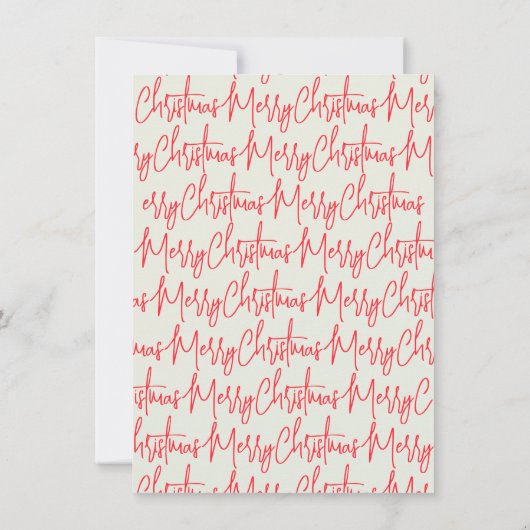 Christmas Merry Christmas Mer
ry Christmas Merry Christmas M
erry Christmas Merry Christmas
Merry Christmas Merry Christm
as Merry Christmas Merry Chri
mas Merry Christmas Merry C
istmas Merry Christmas Merry C
hristmas Merry Christmas Merry